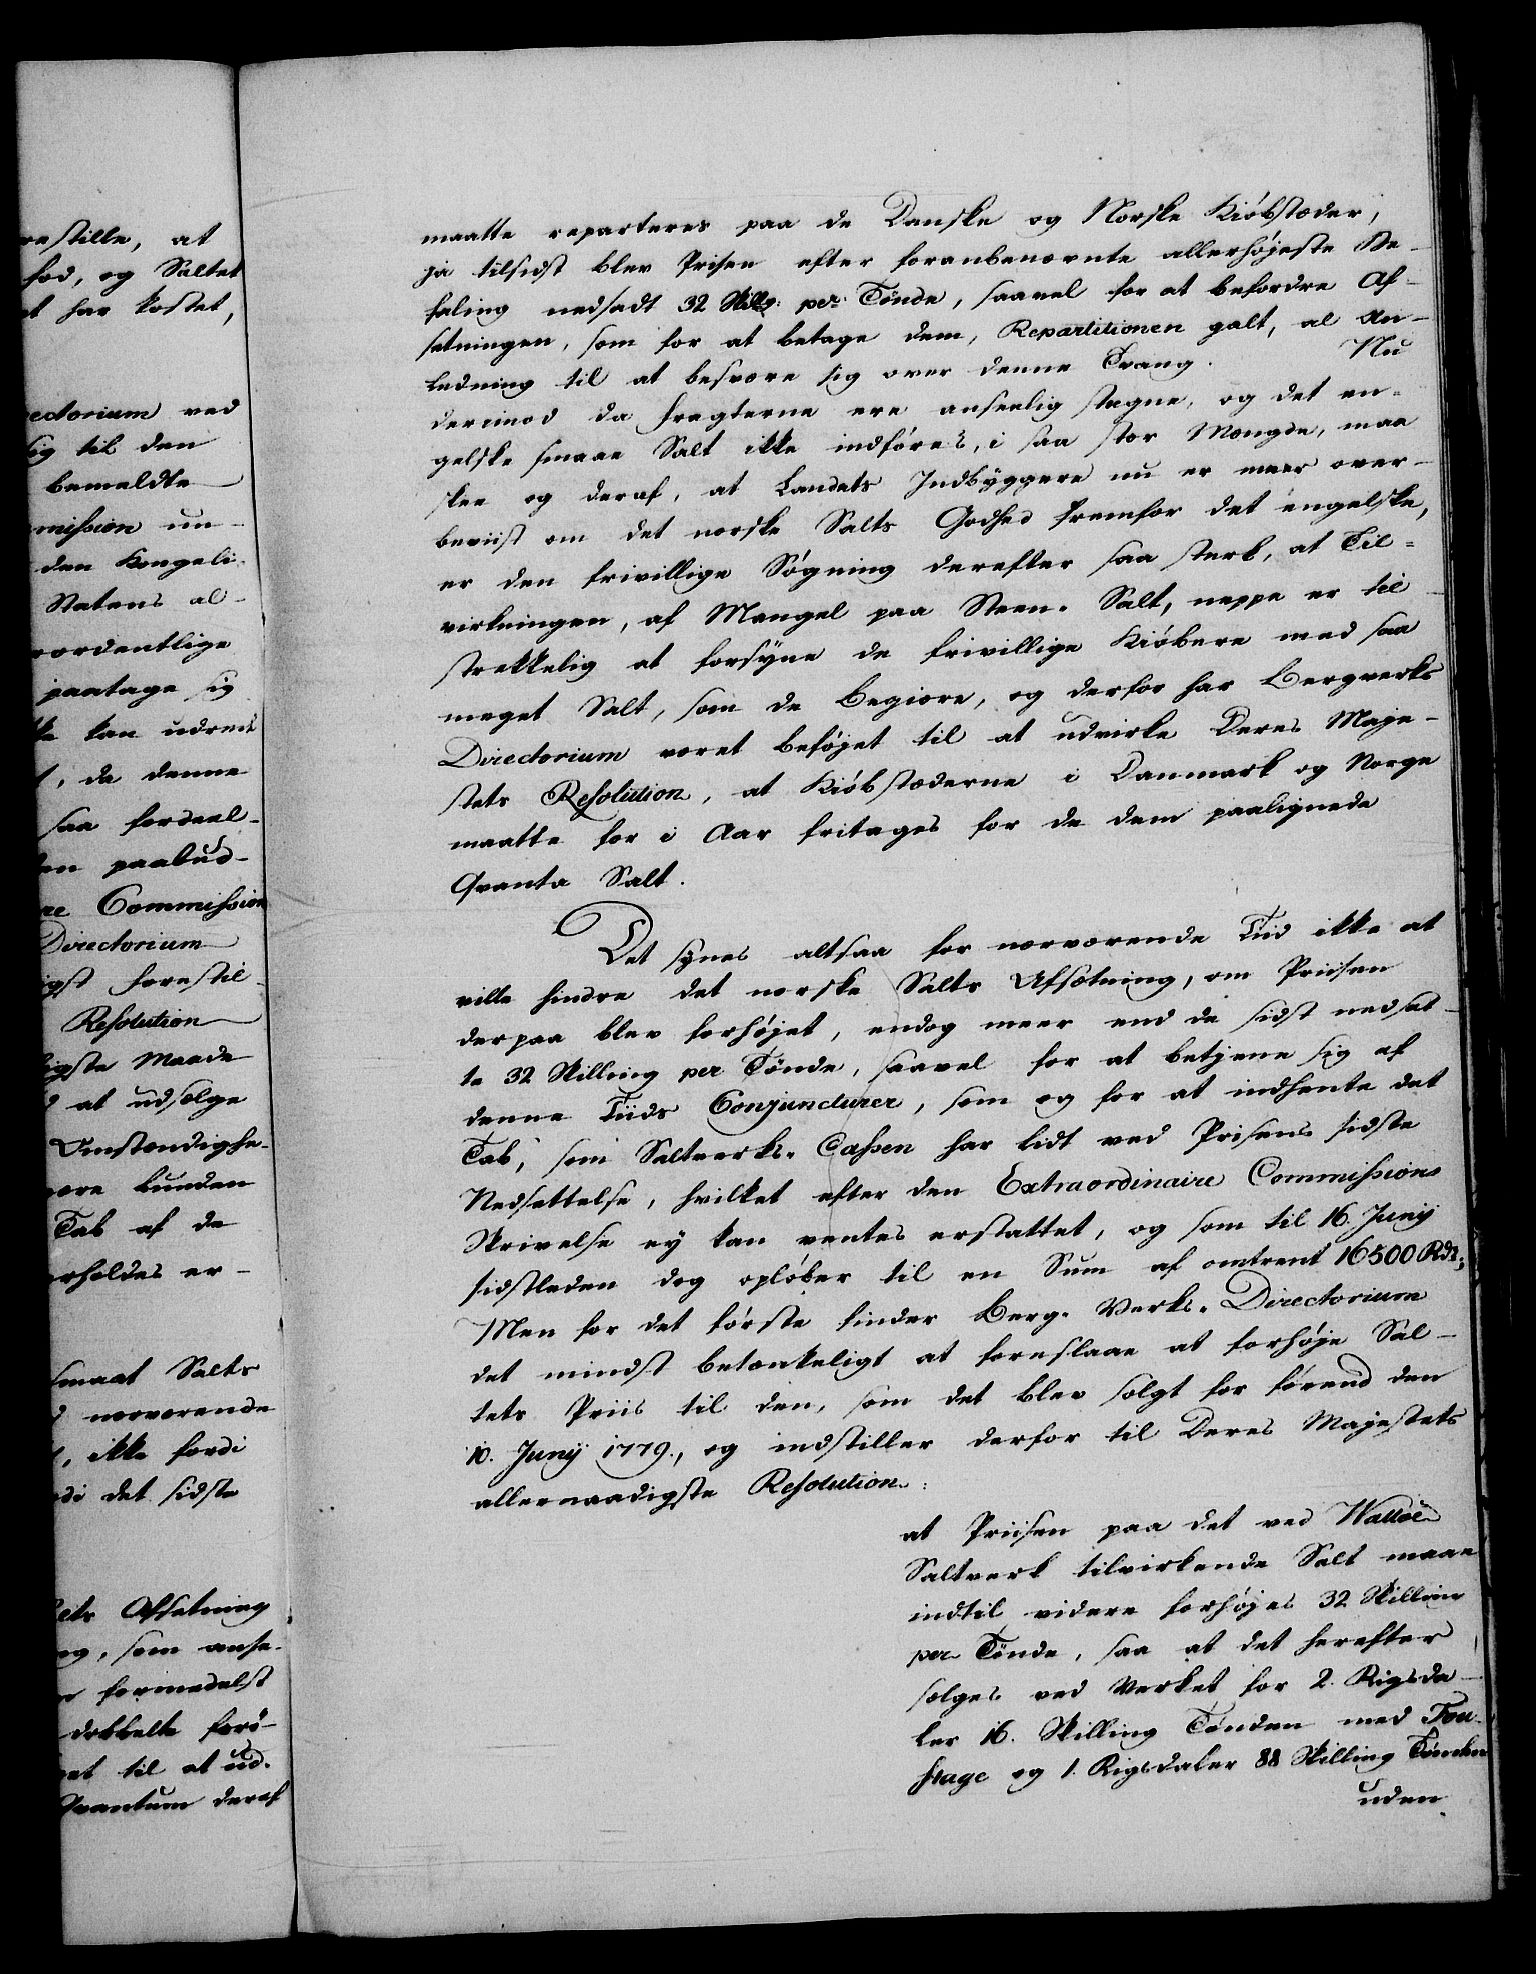 restille, at
fod, og Saltet
t har kostet,
ectorium ved
sig til den
bemeldte
mission un-
den Kongeli-
Statens al-
rordentlige
paatage sig
kan udrede
, da denne
saa fordeel-
en paabud-
re Commission
Directorium
igst forestil-
Resolution
igste Maade
at udsælge
Omstændighe-
være bunden
Tab af de
erholdes er-
smaat Salts
nærværende
, ikke fordi
di det sidste
ets Afsetning
og, som anse-
formedelst
dobbelte
et til at ud-
Qvantum deraf
maatte reparteres paa de Danske og Norske Kiøbstæder,
ja tilsidst blev Prisen efter foranbenævnte allerhøjeste Be-
faling nedsadt 32 Skillg: per Tønde, saavel for at befordre Af-
setningen, som for at betage dem, Repartitionen galt, al An-
ledning til at besvære sig over denne Trang. Nu
derimod da fragterne ere anseelig stegne, og det en-
gelske smaae Salt ikke indføres, i saa stor Mængde, maa
skee og deraf, at Landets Indbyggere nu er meer over-
beviist om det norske Salts Godhed fremfor det engelske,
er den frivillige Søgning derefter saa sterk, at Til-
virkningen, af Mangel paa Steen-Salt, neppe er til-
strekkelig at forsyne de frivillige Kiøbere med saa
meget Salt, som de begiære, og derfor har Bergverks
Directorium været beføjet til at udvirke Deres Maje-
stets Resolution, at Kiøbstæderne i Danmark og Norge
maatte for i Aar fritages for de dem paalignede
Qvanta Salt.
Det synes altsaa for nærværende Tiid ikke at
ville hindre det norske Salts Afsætning, om Priisen
derpaa blev forhøjet, endog meer end de sidst nedsat-
te 32 Skilling per Tønde, saavel for at betjene sig af
denne Tiids Conjuncturer, som og for at indhente det
Tab, som Saltverks-Cassen har lidt ved Prisens sidste
Nedsettelse, hvilket efter den Extraordinaire Commissions
Skrivelse ey kan ventes erstattet, og som til 16. Junij
sidstleden dog opløber til en Sum af omtrent 16500 Rdr;
Men for det første finder Berg-Verks-Directorium
det mindst betænkeligt at foreslaae at forhøje Sal-
tets Priis til den, som det blev solgt for førend den
10. Junij 1779., og indstiller derfor til Deres Majestets
allernaadigste Resolution:
at Priisen paa det ved Walløe
Saltverk tilvirkende Salt maae
indtil videre forhøjes 32 Skilling
per Tønde, saa at det herefter
sælges ved Verket for 2. Rigsda-
ler 16. Skilling Tønden med Fou-
stage og 1. Rigsdaler 88 Skilling Tønden
uden